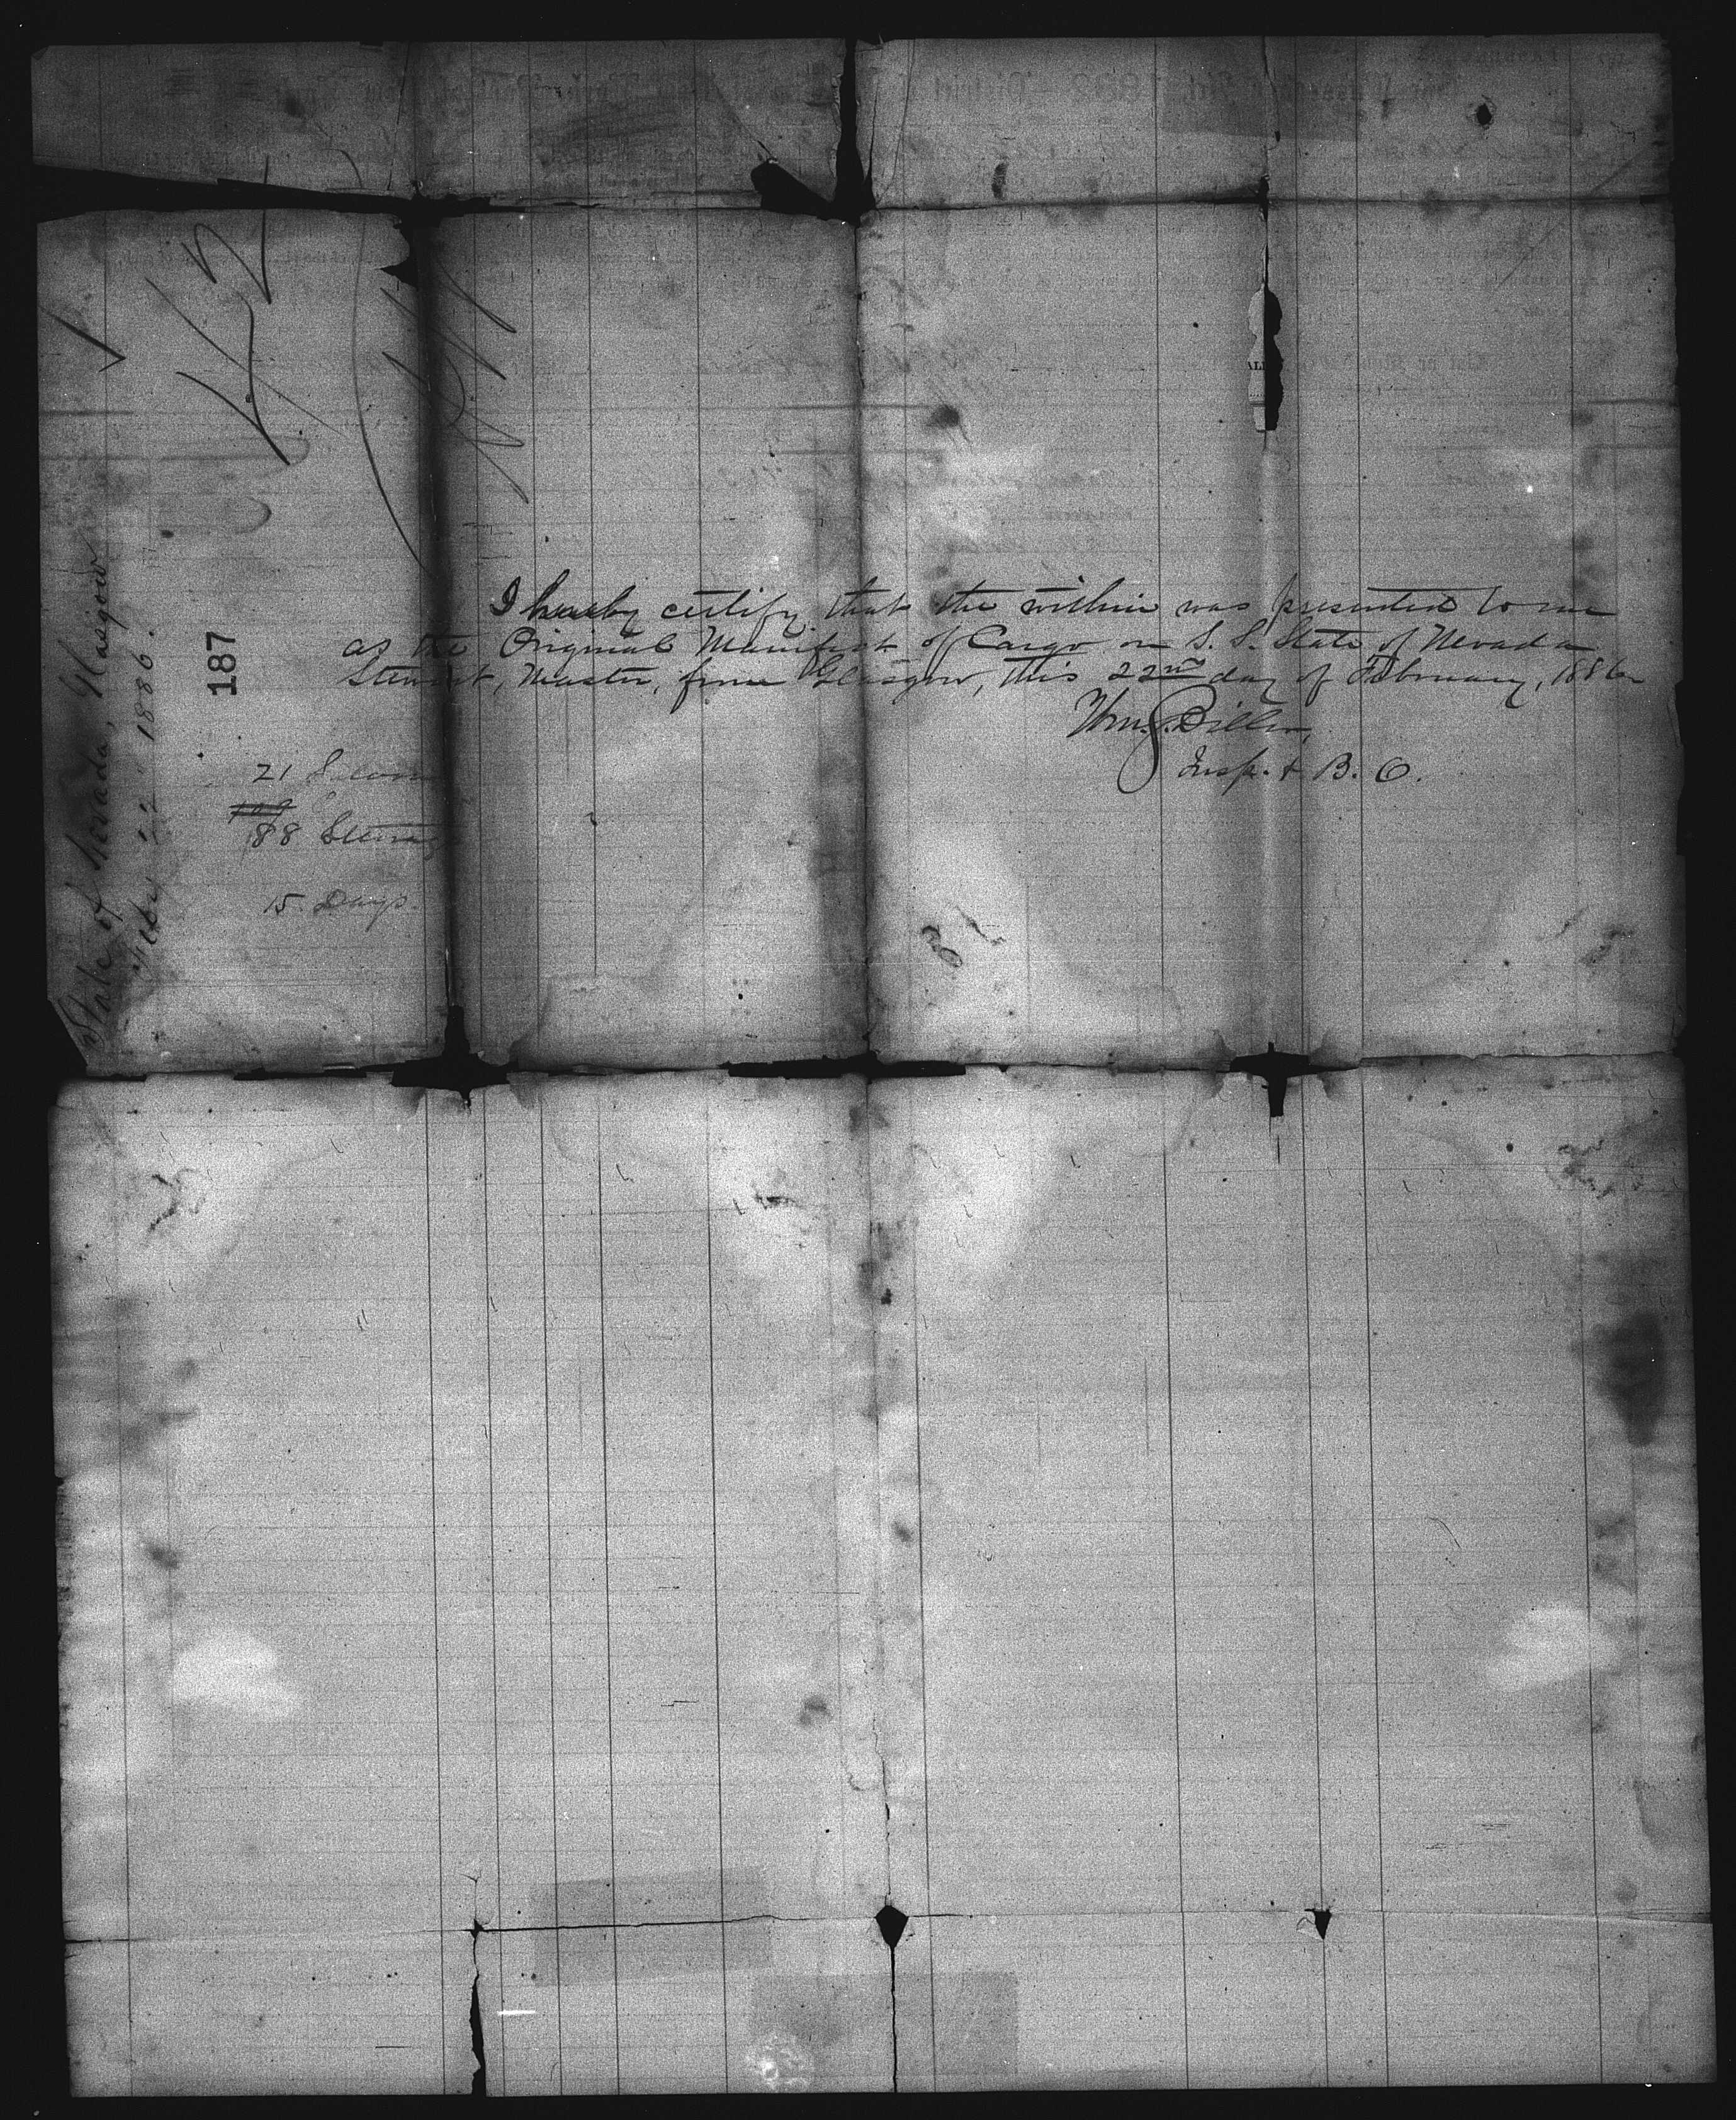 State of Nevada, Glasgow
22 1886.
187
21 Saloon
188 Steerage
15 Days.
I hereby certify that the within was presented to me
as the Original Manifest of Cargo on S. S. State of Nevada
Stewart, Master, from Glasgow, this 22nd day of February, 1886
Insp. & B. O.